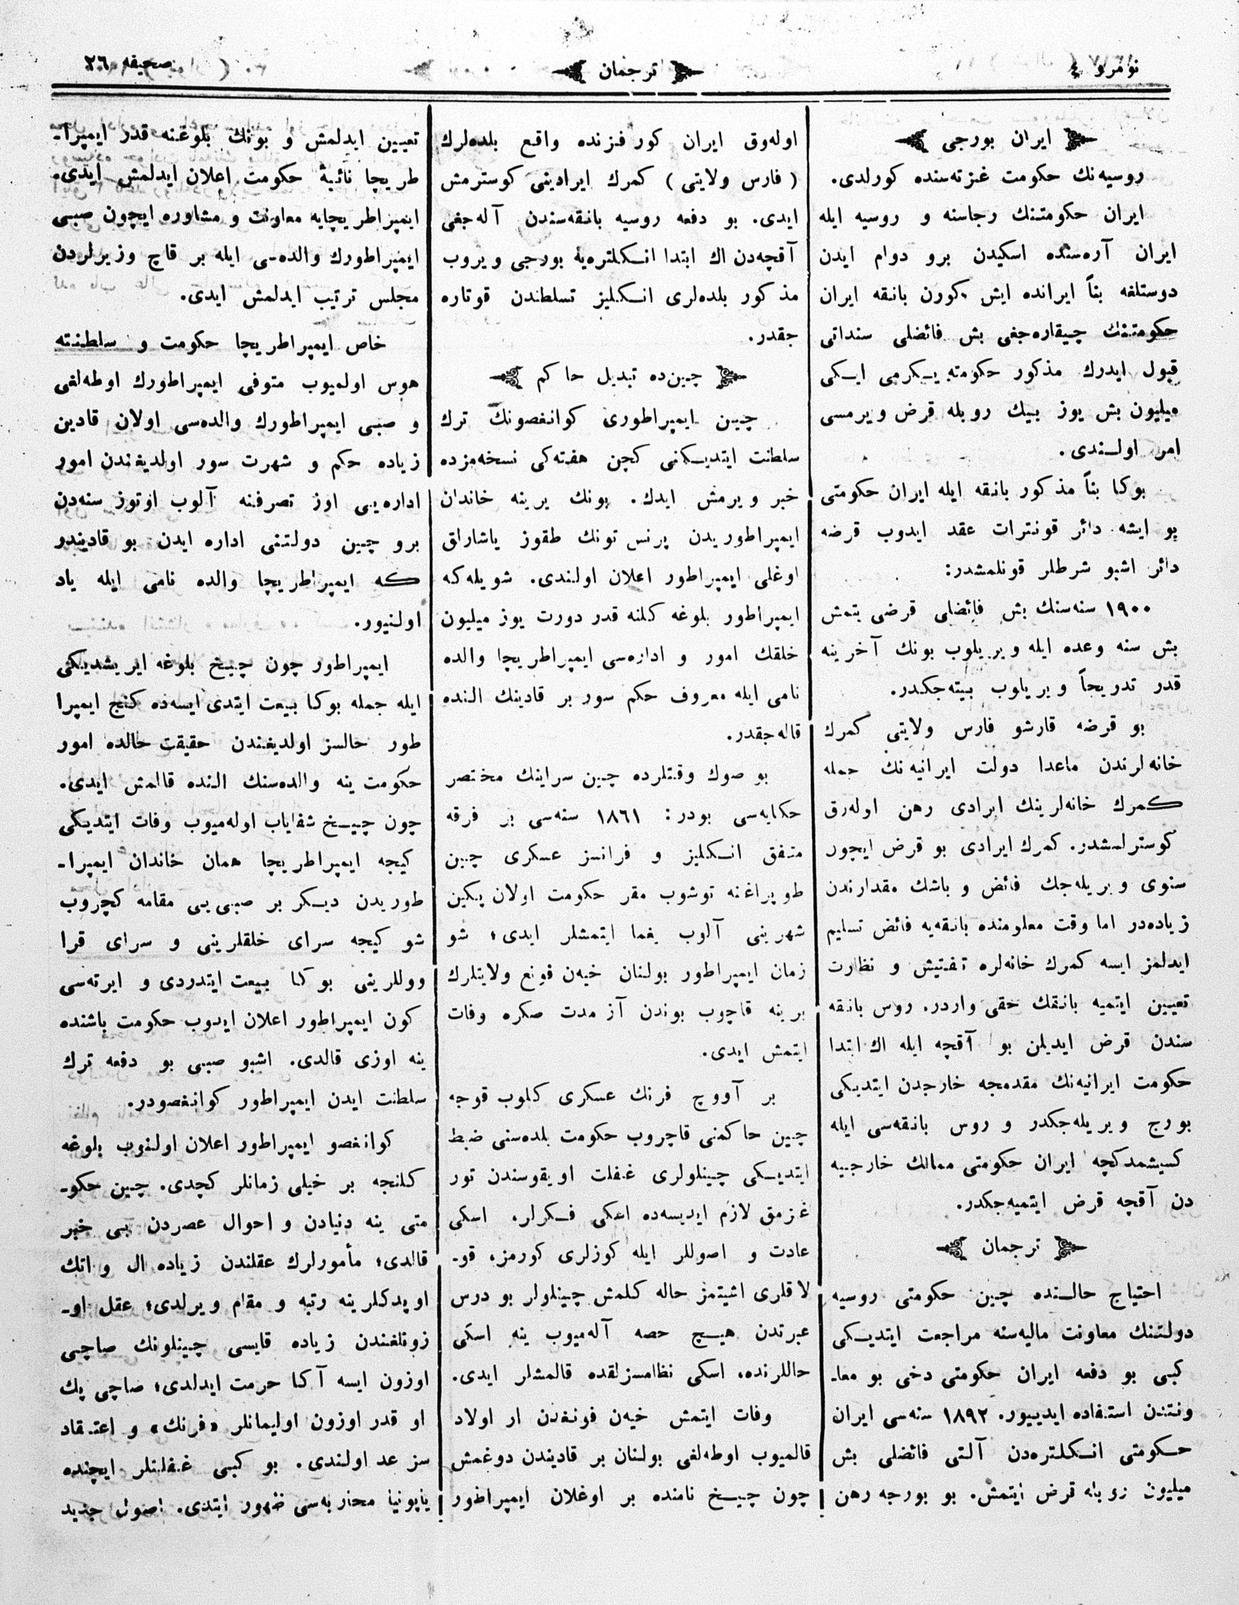 نومرو ٤
ترجمان
صحیفه ٢٦
ایران بورجی
روسیه‌نك حكومت غزته‌سنده كورلدی.
ایران حكومتنك رجاسنه و روسیه ایله
ایران آره‌سنده اسكیدن برو دوام ایدن
دوستلغه بنأ ایرانده ایش كورن بانقه ایران
حكومتنك چیقاره‌جغی بش فائضلی سنداتی
قبول ایدرك مذكور حكومته یكرمی ایكی
میلیون بش یوز بیك روبله قرض ویرمسی
امر اولندی.
بوكا بنأ مذكور بانقه ایله ایران حكومتی
بو ایشه دائر قونترات عقد ایدوب قرضه
دائر اشبو شرطلر قونلمشدر:
١٩٠٠ سنه‌سنك بش فائضلی قرضی یتمش
بش سنه وعده ایله ویریلوب بونك آخرینه
قدر تدریجاً ویریلوب بیته‌جكدر.
بو قرضه قارشو فارس ولایتی كمرك
خانه‌لرندن ماعدا دولت ایرانیه‌نك جمله
كمرك خانه‌لرینك ایرادی رهن اوله‌رق
كوسترلمشدر. كمرك ایرادی بو قرض ایچون
سنوی ویریله‌جك فائض و باشك مقدارندن
زیاده‌در اما وقت معلومنده بانقه‌یه فائض تسلیم
ایدلمز ایسه كمرك خانه‌لره تفتیش و نظارت
تعیین ایتمیه بانقك حقی واردر. روس بانقه
سندن قرض ایدیلن بو آقچه ایله اك ابتدا
حكومت ایرانیه‌نك مقدمجه خارجدن ایتدیكی
بورج ویریله‌جكدر و روس بانقه‌سی ایله
كسیشمدكچه ایران حكومتی ممالك خارجیه
دن آقچه قرض ایتمیه‌جكدر.
ترجمان
احتیاج حالنده چین حكومتی روسیه
دولتنك معاونت مالیه‌سنه مراجعت ایتدیكی
كبی بو دفعه ایران حكومتی دخی بو معا-
ونتدن استفاده ایدییور. ١٨٩٢ سنه‌سی ایران
حكومتی انكلتره‌دن آلتی فائضلی بش
میلیون روبله قرض ایتمش. بو بورجه رهن
اوله‌وق ایران كورفزنده واقع بلده‌لرك
(فارس ولایتی) كمرك ایرادینی كوسترمش
ایدی. بو دفعه روسیه بانقه‌سندن آله‌جغی
آقچه‌دن اك ابتدا انكلتره‌یه بورجی ویروب
مذكور بلده‌لری انكلیز تسلطندن قوتاره
جقدر.
چین‌ده تبدیل حاكم
چین ایمپراطوری كوانغصونك ترك
سلطنت ایتدیكنی كچن هفته‌كی نسخه‌مزده
خبر ویرمش ایدك. بونك یرینه خاندان
ایمپراطوریدن پرنس تونك طقوز یاشارلق
اوغلی ایمپراطور اعلان اولندی. شویله‌كه
ایمپراطور بلوغه كلنه قدر دورت یوز میلیون
خلقك امور و اداره‌سی ایمپراطریچا والده
نامی ایله معروف حكم سور بر قادینك النده
قاله‌جقدر.
بو صوك وقتلرده چین سراینك مختصر
حكایه‌سی بودر: ١٨٦١ سنه‌سی بر فرقه
متفق انكلیز و فرانسز عسكری چین
طوپراغنه توشوب مقر حكومت اولان پكین
شهرینی آلوب یغما ایتمشلر ایدی؛ شو
زمان ایمپراطور بولنان خیه‌ن فونغ ولایتلرك
برینه قاچوب بوندن آز مدت صكره وفات
ایتمش ایدی.
بر آووچ فرنك عسكری كلوب قوجه
چین حاكمنی قاچروب حكومت بلده‌سنی ضبط
ایتدیكی چینلولری غفلت اویقوسندن تور
غزمق لازم ایدیسه‌ده اسكی فكرلر، اسكی
عادت و اصوللر ایله كوزلری كورمز، قو-
لاقلری اشیتمز حاله كلمش چینلولر بو درس
عبرتدن هیچ حصه آله‌میوب ینه اسكی
حاللرنده، اسكی نظامسزلقده قالمشلر ایدی.
وفات ایتمش خیه‌ن فونغدن ار اولاد
قالمیوب اوطه‌لغی بولنان بر قادیندن دوغمش
چون چیخ نامنده بر اوغلان ایمپراطور
تعیین ایدلمش و بونك بلوغنه قدر ایمپرا-
طریچا نائبهٔ حكومت اعلان ایدلمش ایدی.
ایمپراطریچایه معاونت و مشاوره ایچون صبی
ایمپراطورك والده‌سی ایله بر قاچ وزیرلردن
مجلس ترتیب ایدلمش ایدی.
خاص ایمپراطریچا حكومت و سلطنته
هوس اولمیوب متوفی ایمپراطورك اوطه‌لغی
و صبی ایمپراطورك والده‌سی اولان قادین
زیاده حكم و شهرت سور اولدیغندن امور
اداره‌یی اوز تصرفنه آلوب اوتوز سنه‌دن
برو چین دولتنی اداره ایدن بو قادیندر
كه ایمپراطریچا والده نامی ایله یاد
اولنیور.
ایمپراطور چون چیخ بلوغه ایریشدیكی
ایله جمله بوكا بیعت ایتدی ایسه‌ده كنج ایمپرا
طور حالسز اولدیغندن حقیقت حالده امور
حكومت ینه والده‌سنك النده قالمش ایدی.
چون چیخ شفایاب اوله‌میوب وفات ایتدیكی
كیجه ایمپراطریچا همان خاندان ایمپرا-
طوریدن دیكر بر صبی‌یی مقامه كچروب
شو كیجه سرای خلقلرینی و سرای قرا
ووللرینی بوكا بیعت ایتدردی و ایرته‌سی
كون ایمپراطور اعلان ایدوب حكومت باشنده
ینه اوزی قالدی. اشبو صبی بو دفعه ترك
سلطنت ایدن ایمپراطور كوانغصودر.
كوانغصو ایمپراطور اعلان اولنوب بلوغه
كلنجه بر خیلی زمانلر كچدی. چین حكو-
متی ینه دنیادن و احوال عصردن بی خبر
قالدی؛ مأمورلرك عقلندن زیاده ال و اتك
اوپدكلرینه رتبه و مقام ویرلدی؛ عقل او-
زونلغندن زیاده قایسی چینلونك صاچی
اوزون ایسه آكا حرمت ایدلدی؛ صاچی پك
او قدر اوزون اولیمانلر «فرنك» و اعتقاد
سز عد اولندی. بو كبی غفلتلر ایچنده
یاپونیا محاربه‌سی ظهور ایتدی. اصول جدید